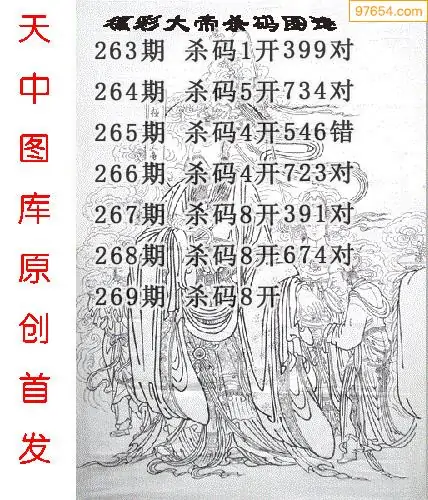 97654.com
福彩大帝杀码图迷
263期 杀码1开399对
264期 杀码5开734对
265期 杀码4开546错
266期 杀码4开723对
267期 杀码8开391对
268期 杀码8开674对
269期 杀码8开
天中图库原创首发